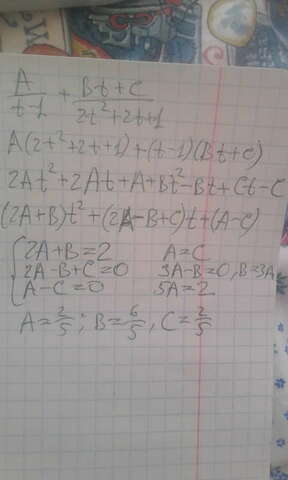 A/(t-1) + (Bt+C)/(2t²+2t+1)
A(2t²+2t+1)+(t-1)(Bt+C)
2At²+2At+A+Bt²-Bt+Ct-C
(2A+B)t²+(2A-B+C)t+(A-C)
2A+B=2 A=C
2A-B+C=0 3A-B=0, B=3A
A-C=0 5A=2
A=2/5; B=6/5, C=2/5